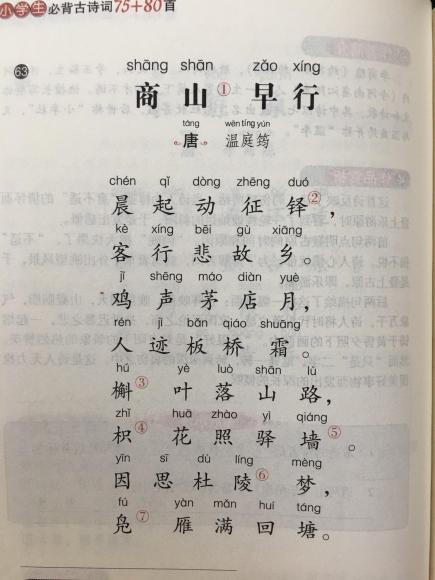 小学生必背古诗词75+80首
63
shāng shān zǎo xíng
商山①早行
táng wēn tíng yún
唐 温庭筠
chén qǐ dòng zhēng duó
晨起动征铎②，
kè xíng bēi gù xiāng
客行悲故乡。
jī shēng máo diàn yuè
鸡声茅店月，
rén jì bǎn qiáo shuāng
人迹板桥霜。
hú yè luò shān lù
槲③叶落山路，
zhǐ huā zhào yì qiáng
枳④花照驿墙⑤。
yīn sī dù líng mèng
因思杜陵⑥梦，
fú yàn mǎn huí táng
凫⑦雁满回塘。